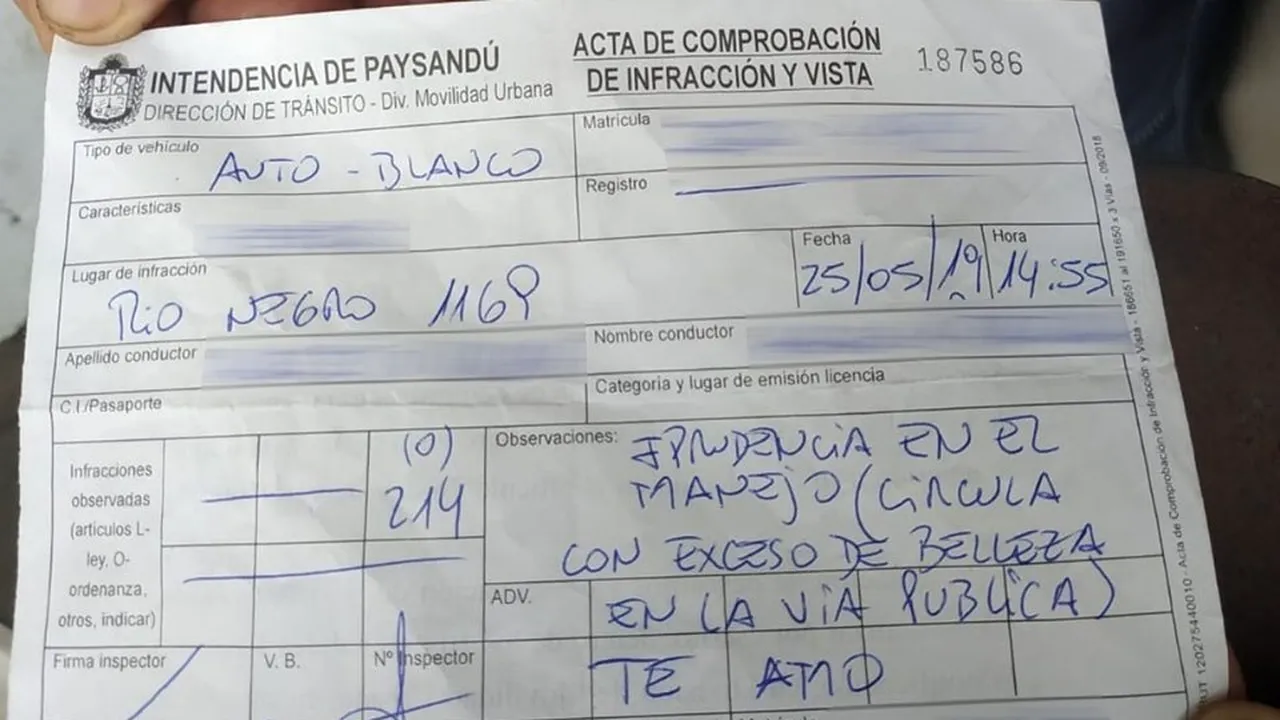 INTENDENCIA DE PAYSANDÚ
DIRECCIÓN DE TRÁNSITO - Div. Movilidad Urbana
ACTA DE COMPROBACIÓN
DE INFRACCIÓN Y VISTA
187586
Tipo de vehículo
AUTO - BLANCO
Matrícula
Características
Registro
Lugar de infracción
RIO NEGRO 1169
Fecha
25/05/19
Hora
14:55
Apellido conductor
Nombre conductor
C.I./Pasaporte
Categoria y lugar de emisión licencia
Infracciones
observadas
(artículos L-
ley, O-
ordenanza,
otros, indicar)
(O)
214
Observaciones:
IPRUDENCIA EN EL
MANEJO (CIRCULA
CON EXCESO DE BELLEZA
ADV.
EN LA VIA PUBLICA)
TE AMO
Firma inspector
V. B.
Nº Inspector
120275440010 - Acta de Comprobación de Infracción y Vista - 186651 al 191650 x 3 Vías - 09/2018